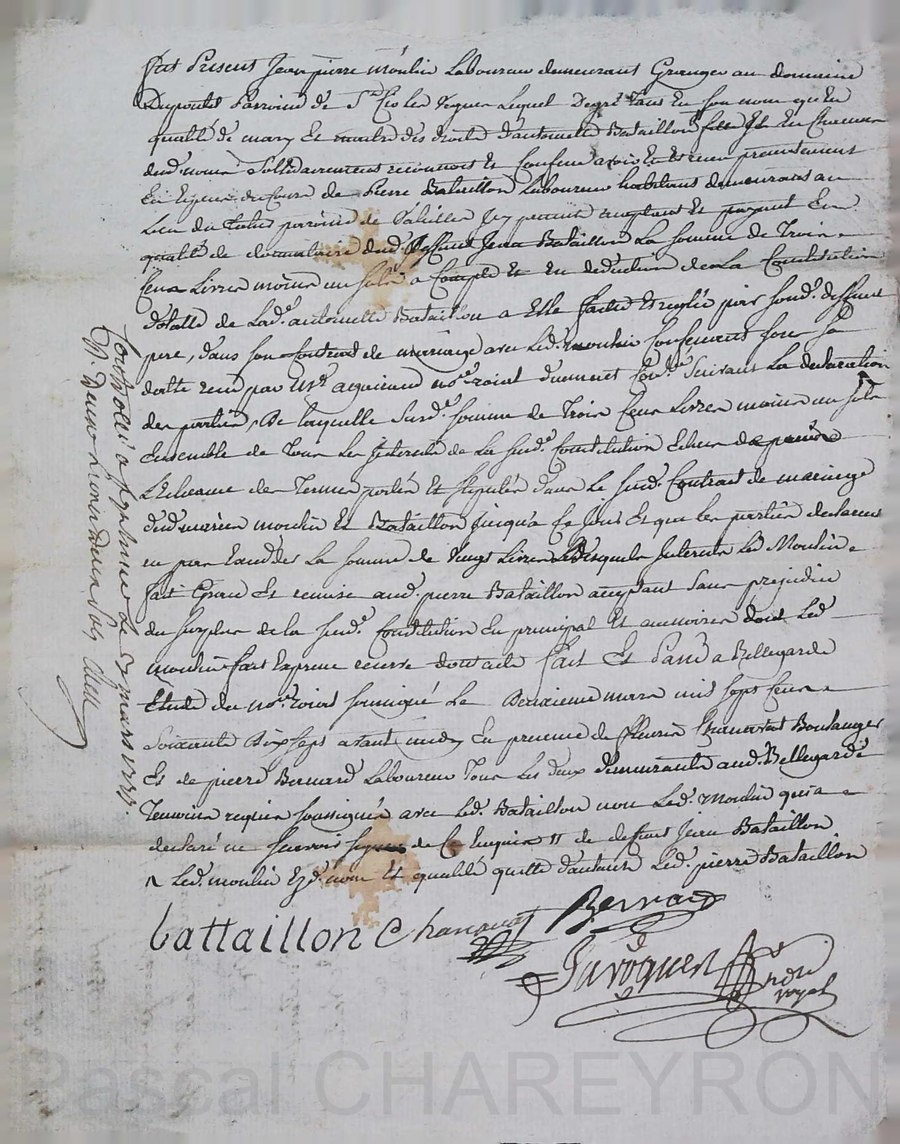 fut Present Jean pierre moulin Laboureur demeurant Granger au domaine
Dupontet Parroisse de St Cio les Lequel Degré tans En son nom qu'en
qualité de mary Et maitre des droits d'antoinette Bataillon sa fe Et En Chacun
desd. noms Sollidairement reconnoit Et Confesse avoir Et receu presentement
En Espece du Cours de Pierre Bataillon Laboureur habitant demeurant au
Lieu du parroisse de present acceptant Et payant En
qualité de donnataire dud. deffunt Jean Bataillon La somme de Trois
Cens Livres moins un sols a Compte Et En deduction de La Constitution
dotalle de Lad. antoinette Bataillon a Elle faite Et reglée par sond. deffunt
pere, dans son Contrat de mariage avec Led. moulin Conjointement Sous sa
datte receu par Mre no.re roial duement Con.lé Suivant La declaration
des parties, De laquelle Surd. somme de Trois Cens Livres moins un sols
Ensemble de Tous Les Interets de La Sud. Constitution Echus depuis
L'Echeance des Termes portés Et stipulés dans Le Sud. Contrat de mariage
desd. mariés moulin Et Bataillon jusqu'a Ce jour Et que les parties declarent
La somme de Vingt Livres Desquels Interets Led. Moulin
fait Grace Et remise aud. pierre Bataillon acceptant Sans prejudice
du surplus de la Sud. Constitution En principal Et accessoires dont Led.
moulin fait Expresse reserve dont acte fait Et Passé a Bellegarde
Etude du no.re roial soussigné Le Deuxieme mars mil sept Cens
Soixante Dix sept avant midy En presence de fleuris Chanavat Boulanger
Et de pierre Bernard Laboureur Tous Les deux demeurants aud. Bellegarde
Temoins requis soussignés avec Led. Bataillon non Led. moulin qui a
declaré ne Scavoir signer de Ce Enquis 11 de deffunt Jean Bataillon
Led. moulin Esd. noms Et qualité quitte d'autant Led. pierre Bataillon
battaillon Chanavat Bernard
no.re
royal
Controllé a Le 5 mars 1777